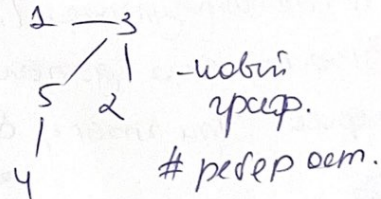 1 3
5 2
-новый
граф.
4
# ребер ост.